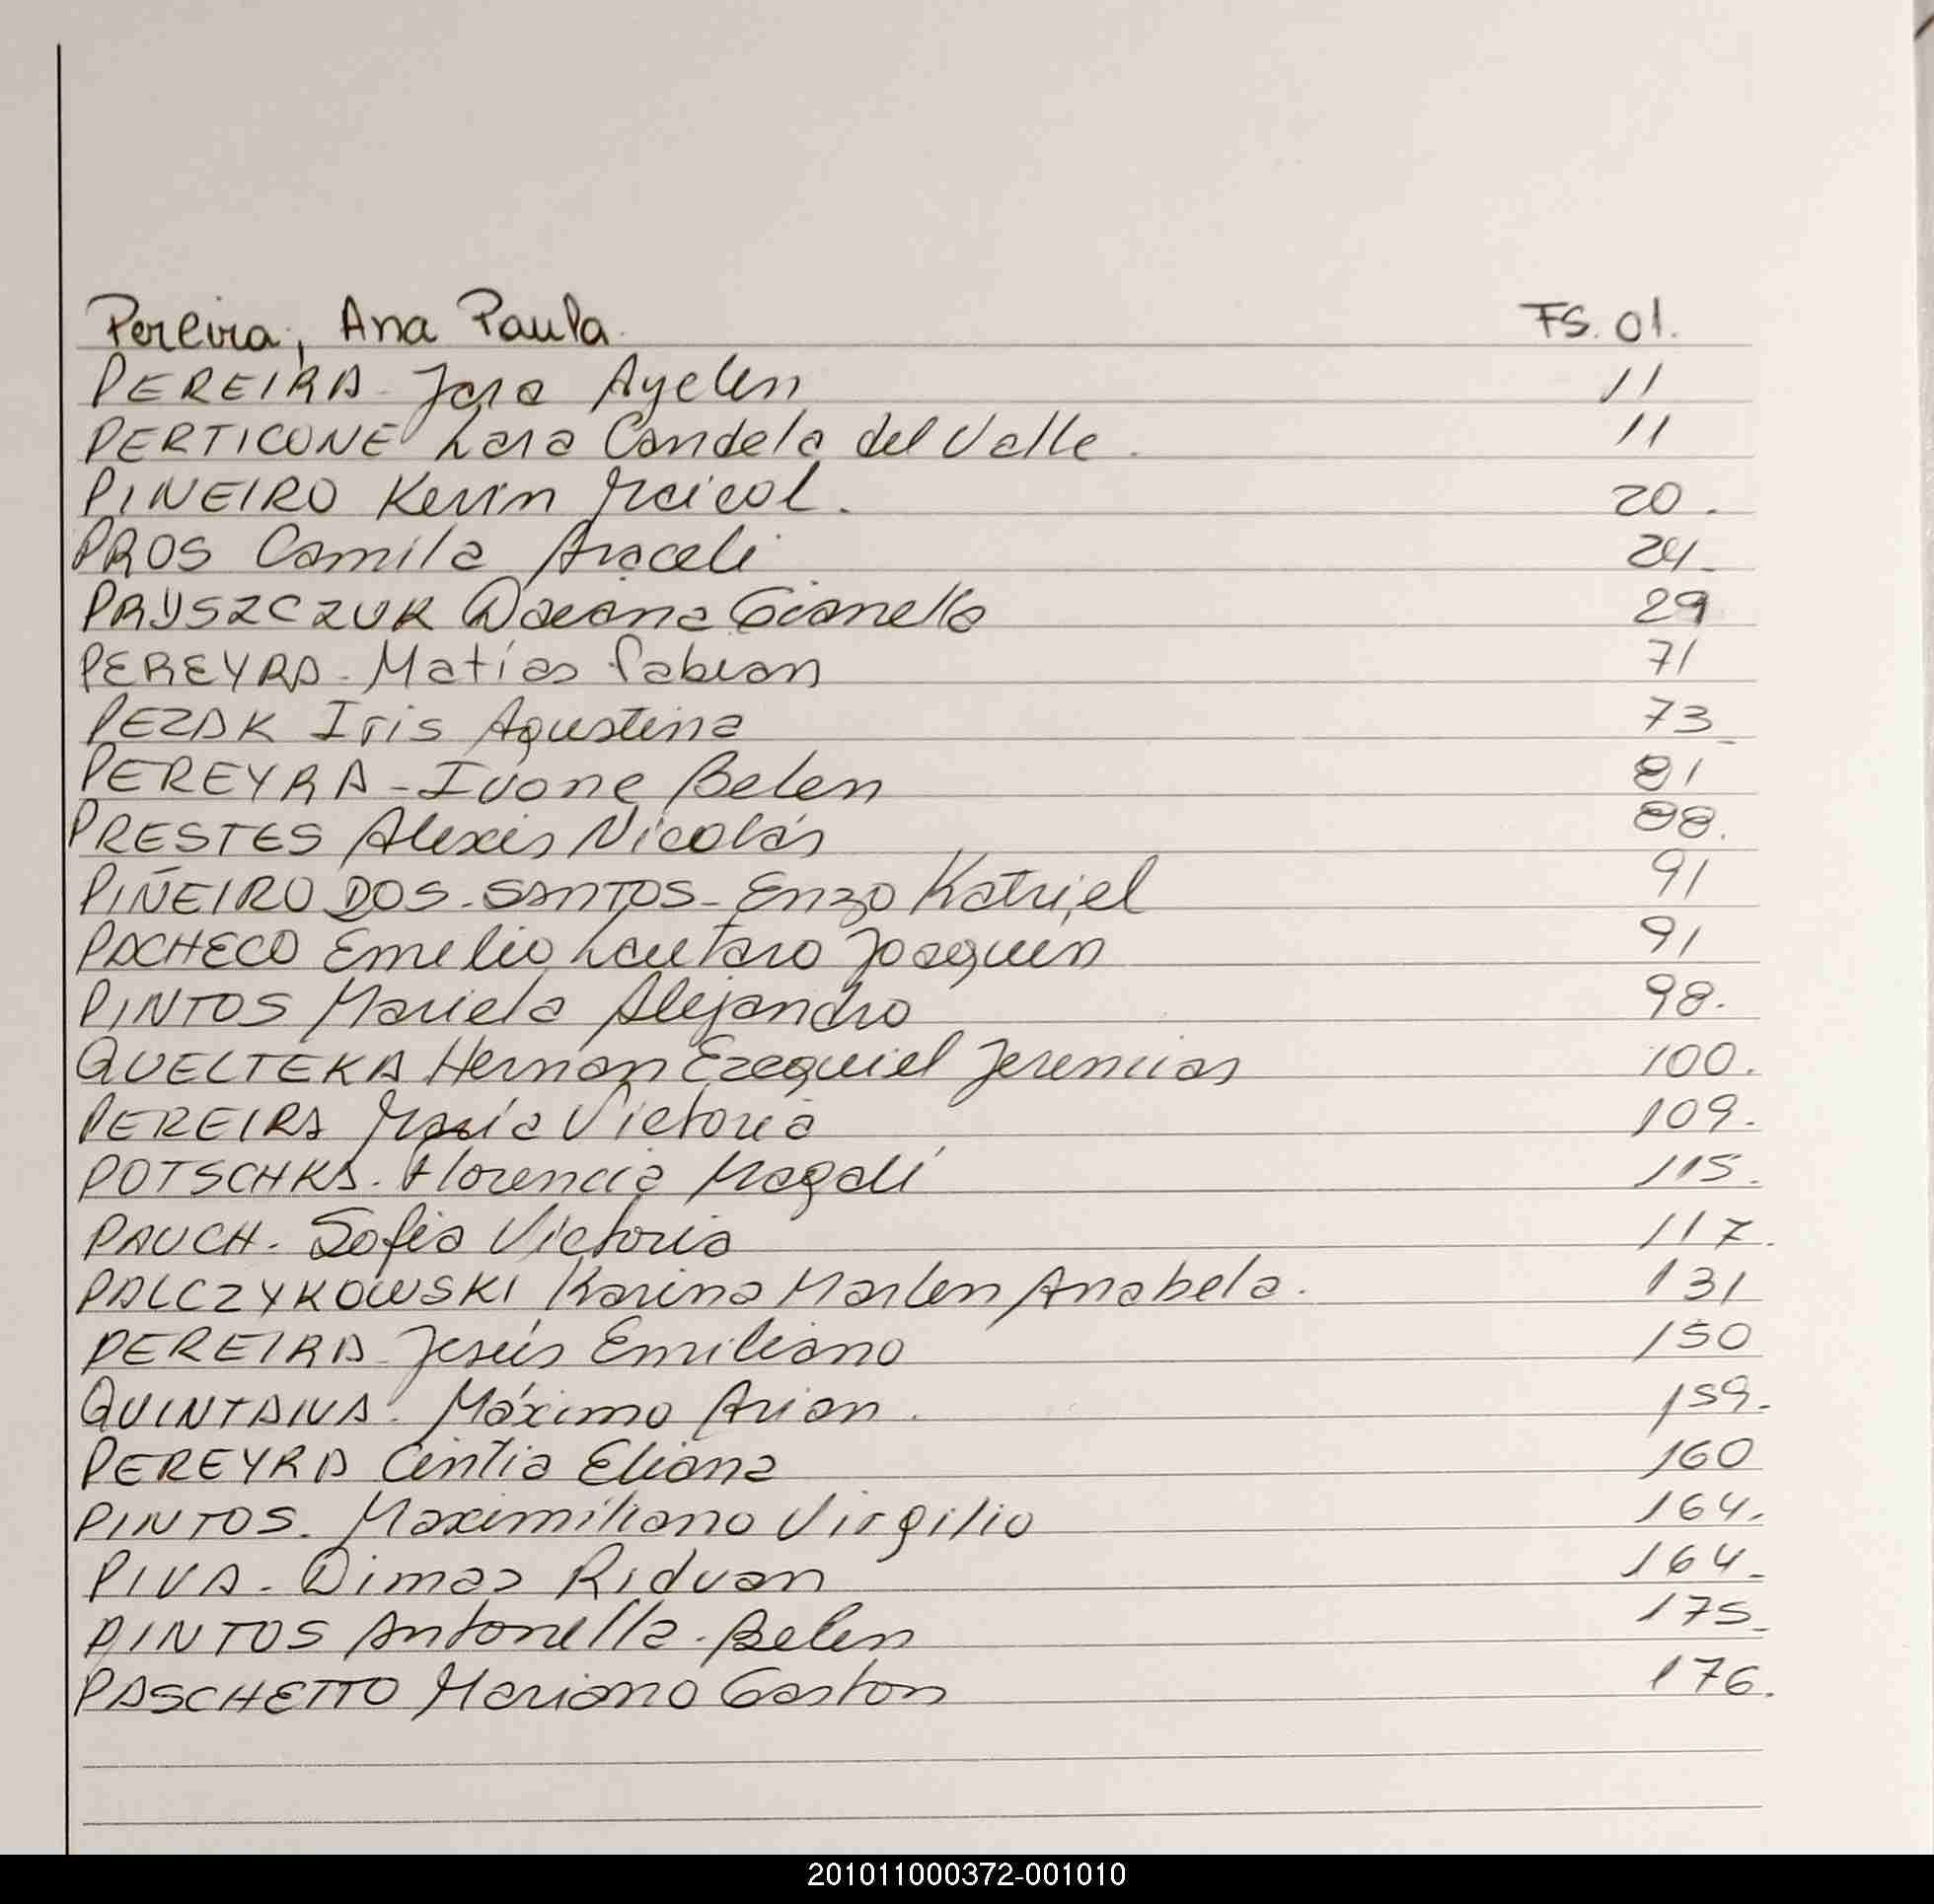 Pereira, Ana Paula. FS. 01.
PEREIRA Jara Ayelen 11
PERTICONE Lara Candela del Valle. 11
PINEIRO Kevin Maicol. 20.
PROS Camila Araceli 24.
PRYSZCZUK Daiana Gianella 29
PEREYRA - Matías Fabian 71
PEZAK Iris Agustina 73
PEREYRA - Ivone Belen 81
PRESTES Alexis Nicolás 88.
PIÑEIRO DOS-SANTOS- Enzo Katriel 91
PACHECO Emelio Lautaro Joaquin 91
PINTOS Mariela Alejandra 98.
QUELTEKA Hernan Ezequiel Jeremias 100.
PEREIRA María Victoria 109.
POTSCHKA. Florencia Magalí 115.
PAUCH. Sofia Victoria 117.
PALCZYKOWSKI Karina Marlen Anabela. 131
PEREIRA Jesús Emiliano 150
QUINTANA. Máximo Arian. 159.
PEREYRA Cintia Eliana 160
PINTOS. Maximiliano Virgilio 164.
PIVA - Dimas Riduan 164.
PINTOS Antonella. Belen 175.
PASCHETTO Mariano Gaston 176.
201011000372-001010